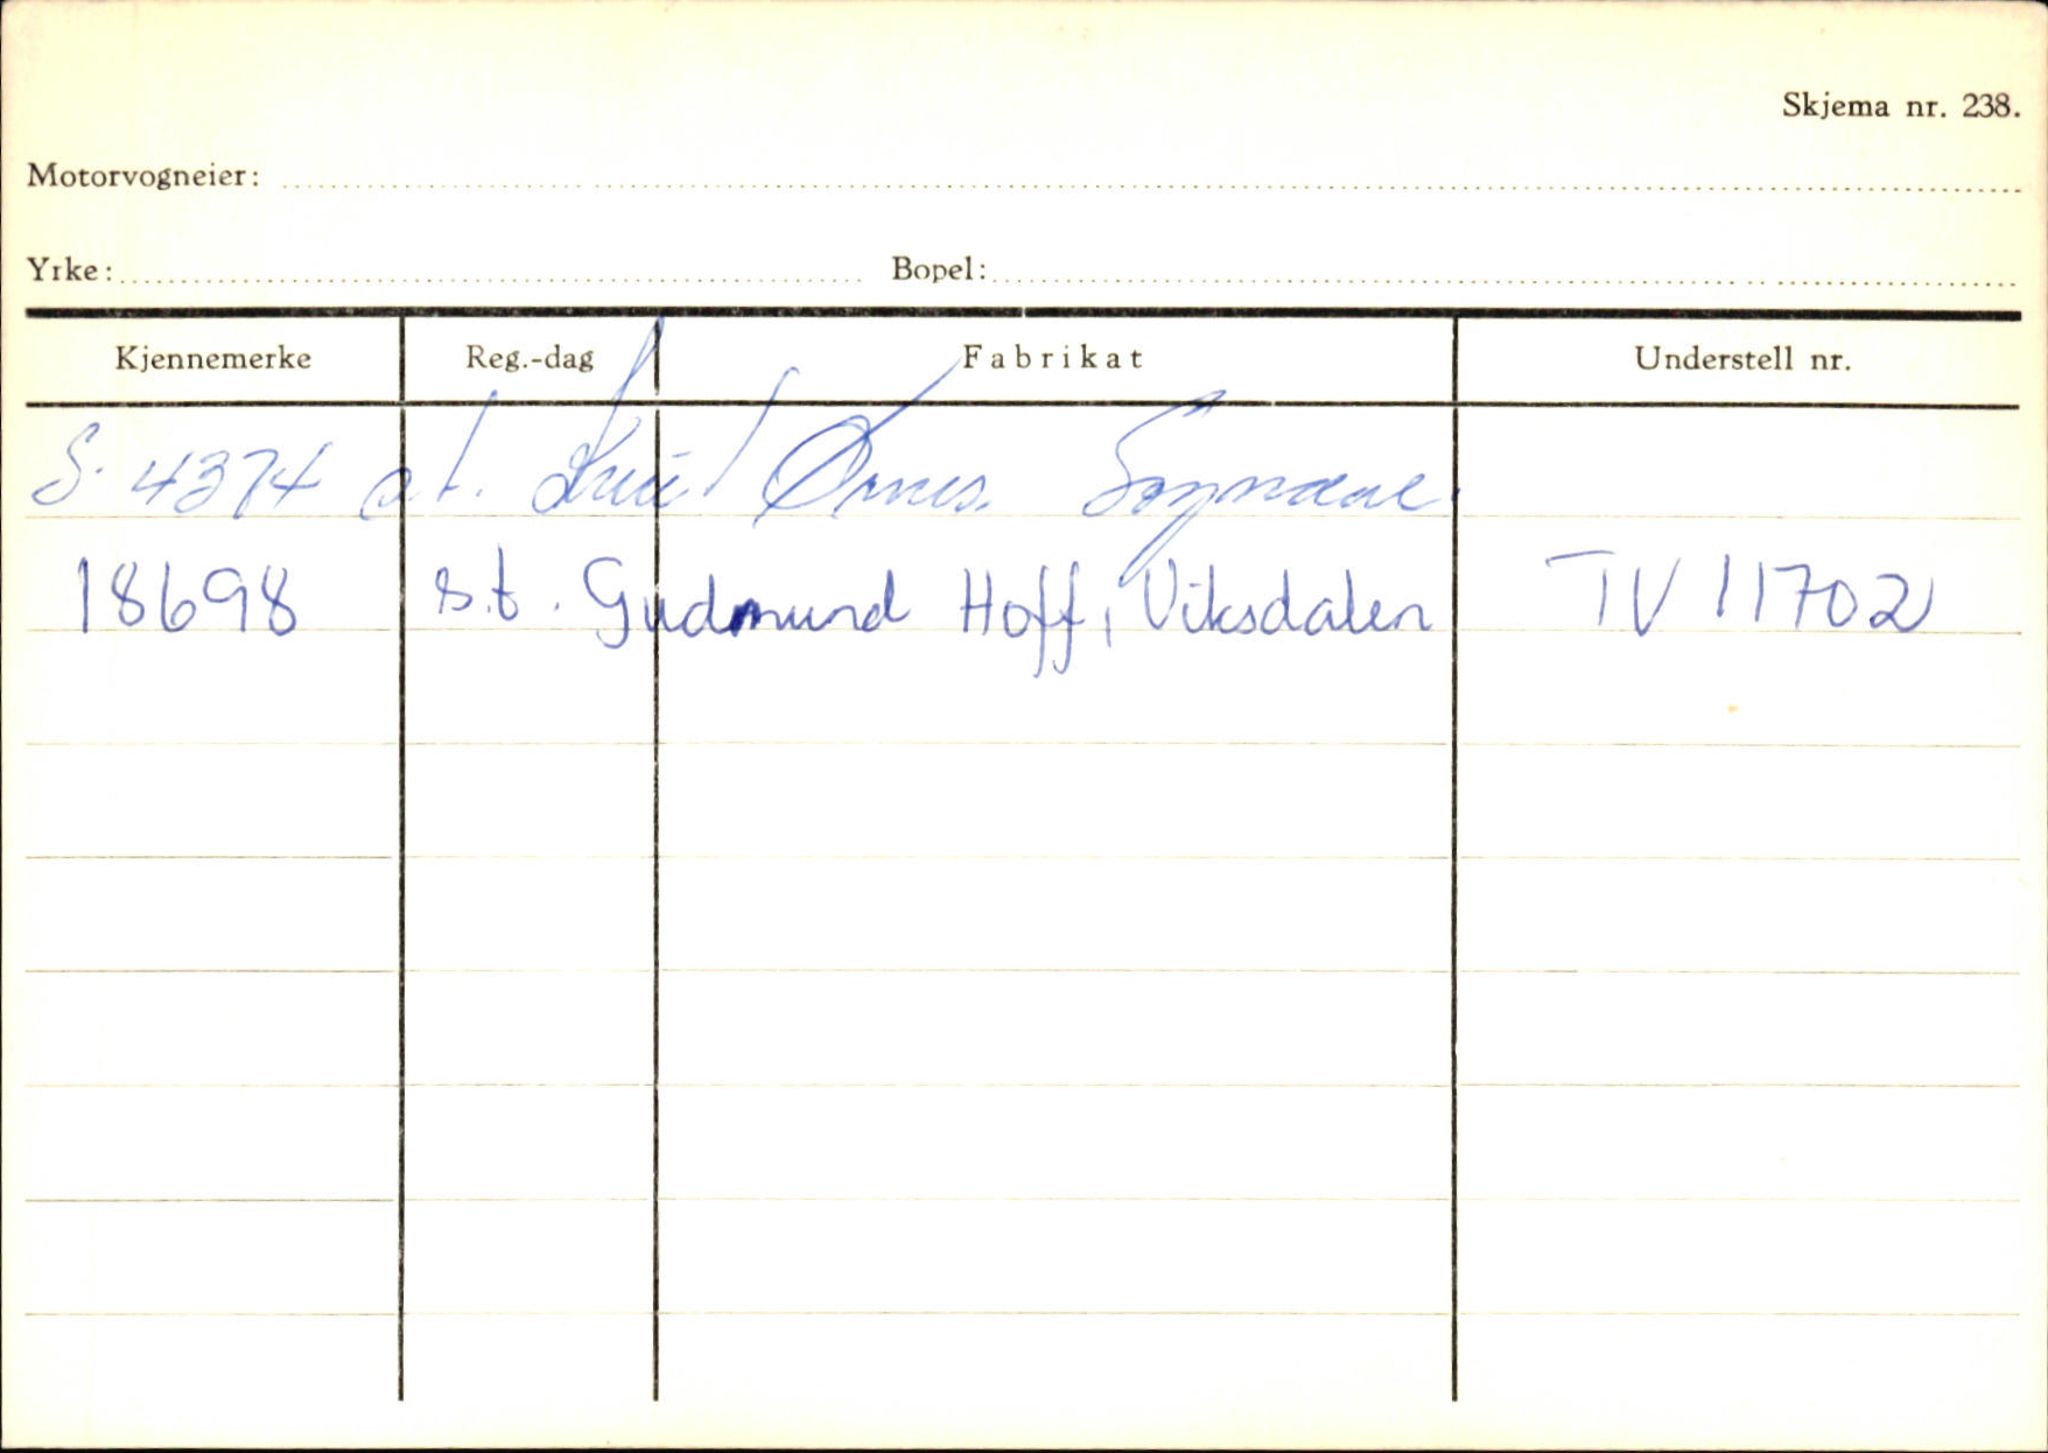 Skjema nr. 238.
Motorvogneier:
Yrke: Bopel:
Kjennemerke Reg.-dag Fabrikat Understell nr.
S. 4374 st. Ørnes. Sogndal.
18698 s.t. Gudmund Hoff, Viksdalen TV 11702